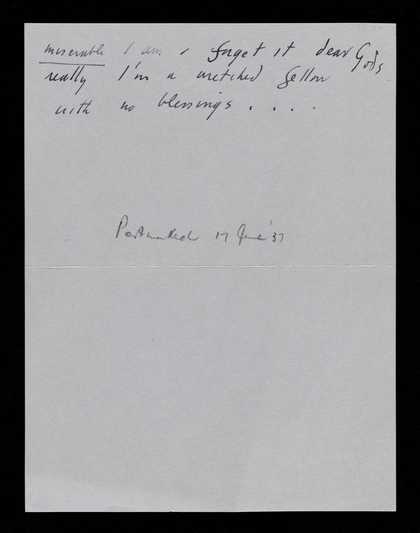 miserable I am , forget it dear Gods
really I'm a wretched fellow
with no blessings . . . .
Postmarked 17 June '37